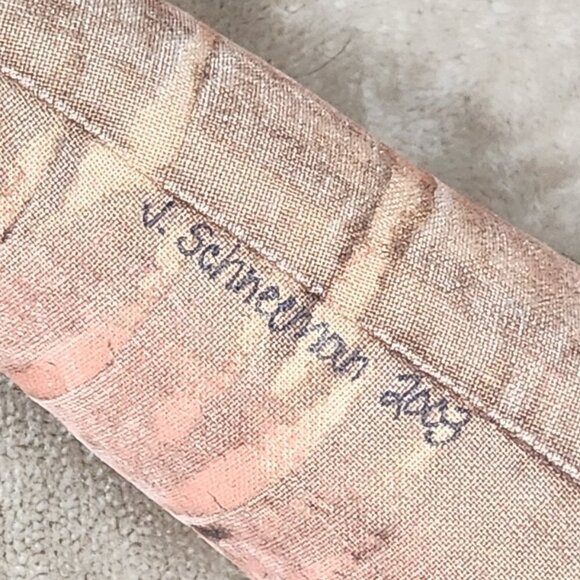 J. Schneeman 2003